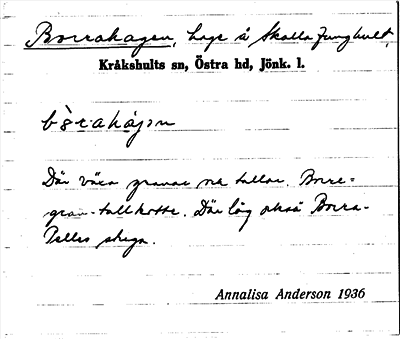 Borrahagen, hage å Skalla Ljunghult,
Kråkshults sn, Östra hd, Jönk. l.
bò̀rahágən
Där växa granar och tallar. Borre =
gran-tallkotte. Där låg också Borra-
Pelles stuga.
Annalisa Anderson 1936